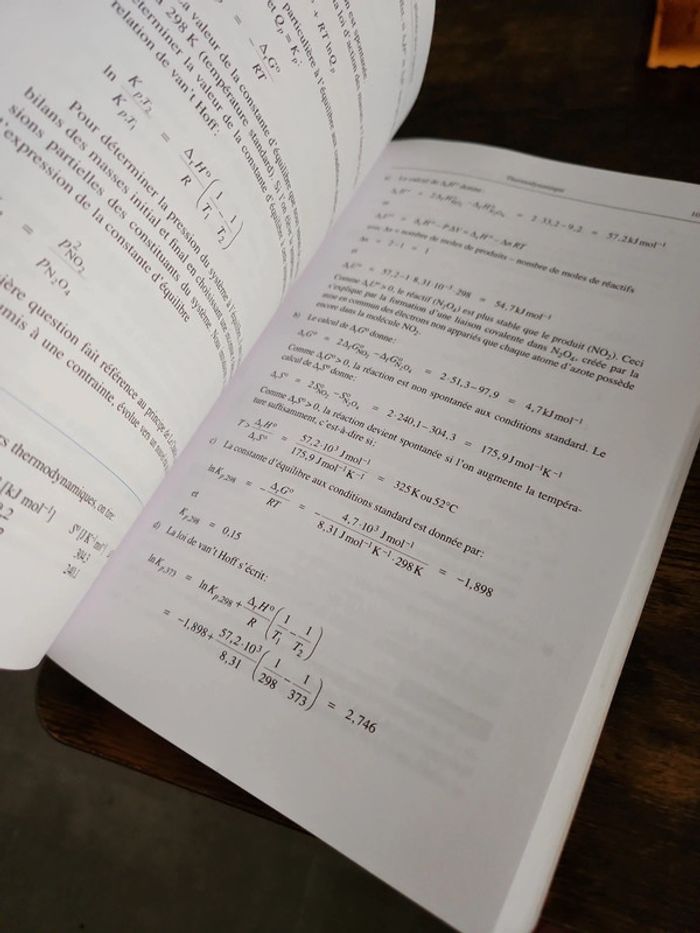 on est spontanée.
+ RT ln Qp
la loi d'action des
particulière à l'équilibre
et Qp = Kp:
= − ΔrG° / RT
la valeur de la constante d'équilibre que nous
à 298 K (température standard). Si l'on
déterminer la valeur de la constante d'équilibre
relation de van't Hoff:
ln Kp,T2 / Kp,T1 = ΔrH° / R (1/T1 − 1/T2)
Pour déterminer la pression du système à l'équilibre
bilans des masses initial et final en choisissant une
sions partielles des constituants du système. Nous
l'expression de la constante d'équilibre:
= p²NO2 / pN2O4
ière question fait référence au principe de Le
mis à une contrainte, évolue vers
rs thermodynamiques, on tire
[kJ mol⁻¹] S° [J K⁻¹ mol⁻¹]
304.3
240.1
Thermodynamique
a) Le calcul de ΔrH° donne:
ΔrH° = 2ΔfH°NO2 − ΔfH°N2O4 = 2·33,2−9,2 = 57,2 kJ mol⁻¹
or
ΔrU° = ΔrH° − PΔV = ΔrH° − Δn RT
avec Δn = nombre de moles de produits − nombre de moles de réactifs
Δn = 2−1 = 1
et
ΔrU° = 57,2−1·8,31·10⁻³·298 = 54,7 kJ mol⁻¹
Comme ΔrU°>0, le réactif (N2O4) est plus stable que le produit (NO2). Ceci
s'explique par la formation d'une liaison covalente dans N2O4, créée par la
mise en commun des électrons non appariés que chaque atome d'azote possède
encore dans la molécule NO2.
b) Le calcul de ΔrG° donne:
ΔrG° = 2ΔfG°NO2 − ΔfG°N2O4 = 2·51,3−97,9 = 4,7 kJ mol⁻¹
Comme ΔrG°>0, la réaction est non spontanée aux conditions standard. Le
calcul de ΔrS° donne:
ΔrS° = 2S°NO2 − S°N2O4 = 2·240,1−304,3 = 175,9 J mol⁻¹K⁻¹
Comme ΔrS°>0, la réaction devient spontanée si l'on augmente la tempéra-
ture suffisamment, c'est-à-dire si:
T > ΔrH° / ΔrS° = 57,2·10³ J mol⁻¹ / 175,9 J mol⁻¹K⁻¹ = 325 K ou 52°C
c) La constante d'équilibre aux conditions standard est donnée par:
ln Kp,298 = − ΔrG° / RT = − 4,7·10³ J mol⁻¹ / 8,31 J mol⁻¹K⁻¹·298 K = −1,898
et
Kp,298 = 0,15
d) La loi de van't Hoff s'écrit:
ln Kp,373 = ln Kp,298 + ΔrH° / R (1/T1 − 1/T2)
= −1,898 + 57,2·10³ / 8,31 (1/298 − 1/373) = 2,746